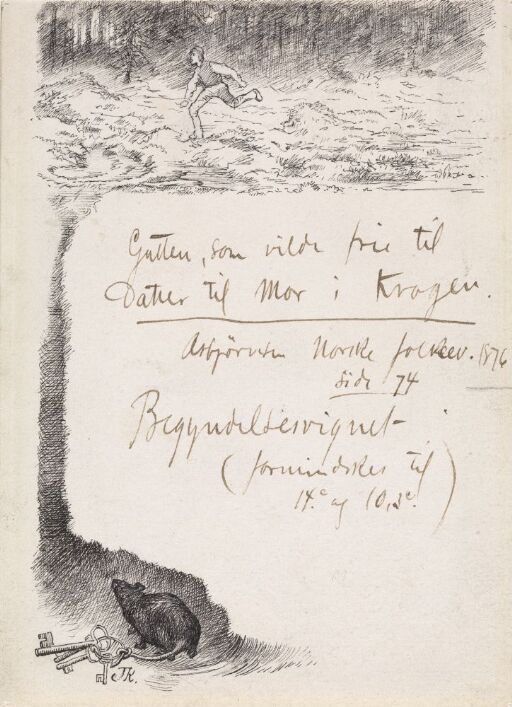 Gutten, som vilde frie til
Datter til Mor i Krogen.
Asbjørnsen Norske folkeev. 1876
side 74
Begyndelsesvignet
(formindskes til
14.c og 10,3c.)
TK.